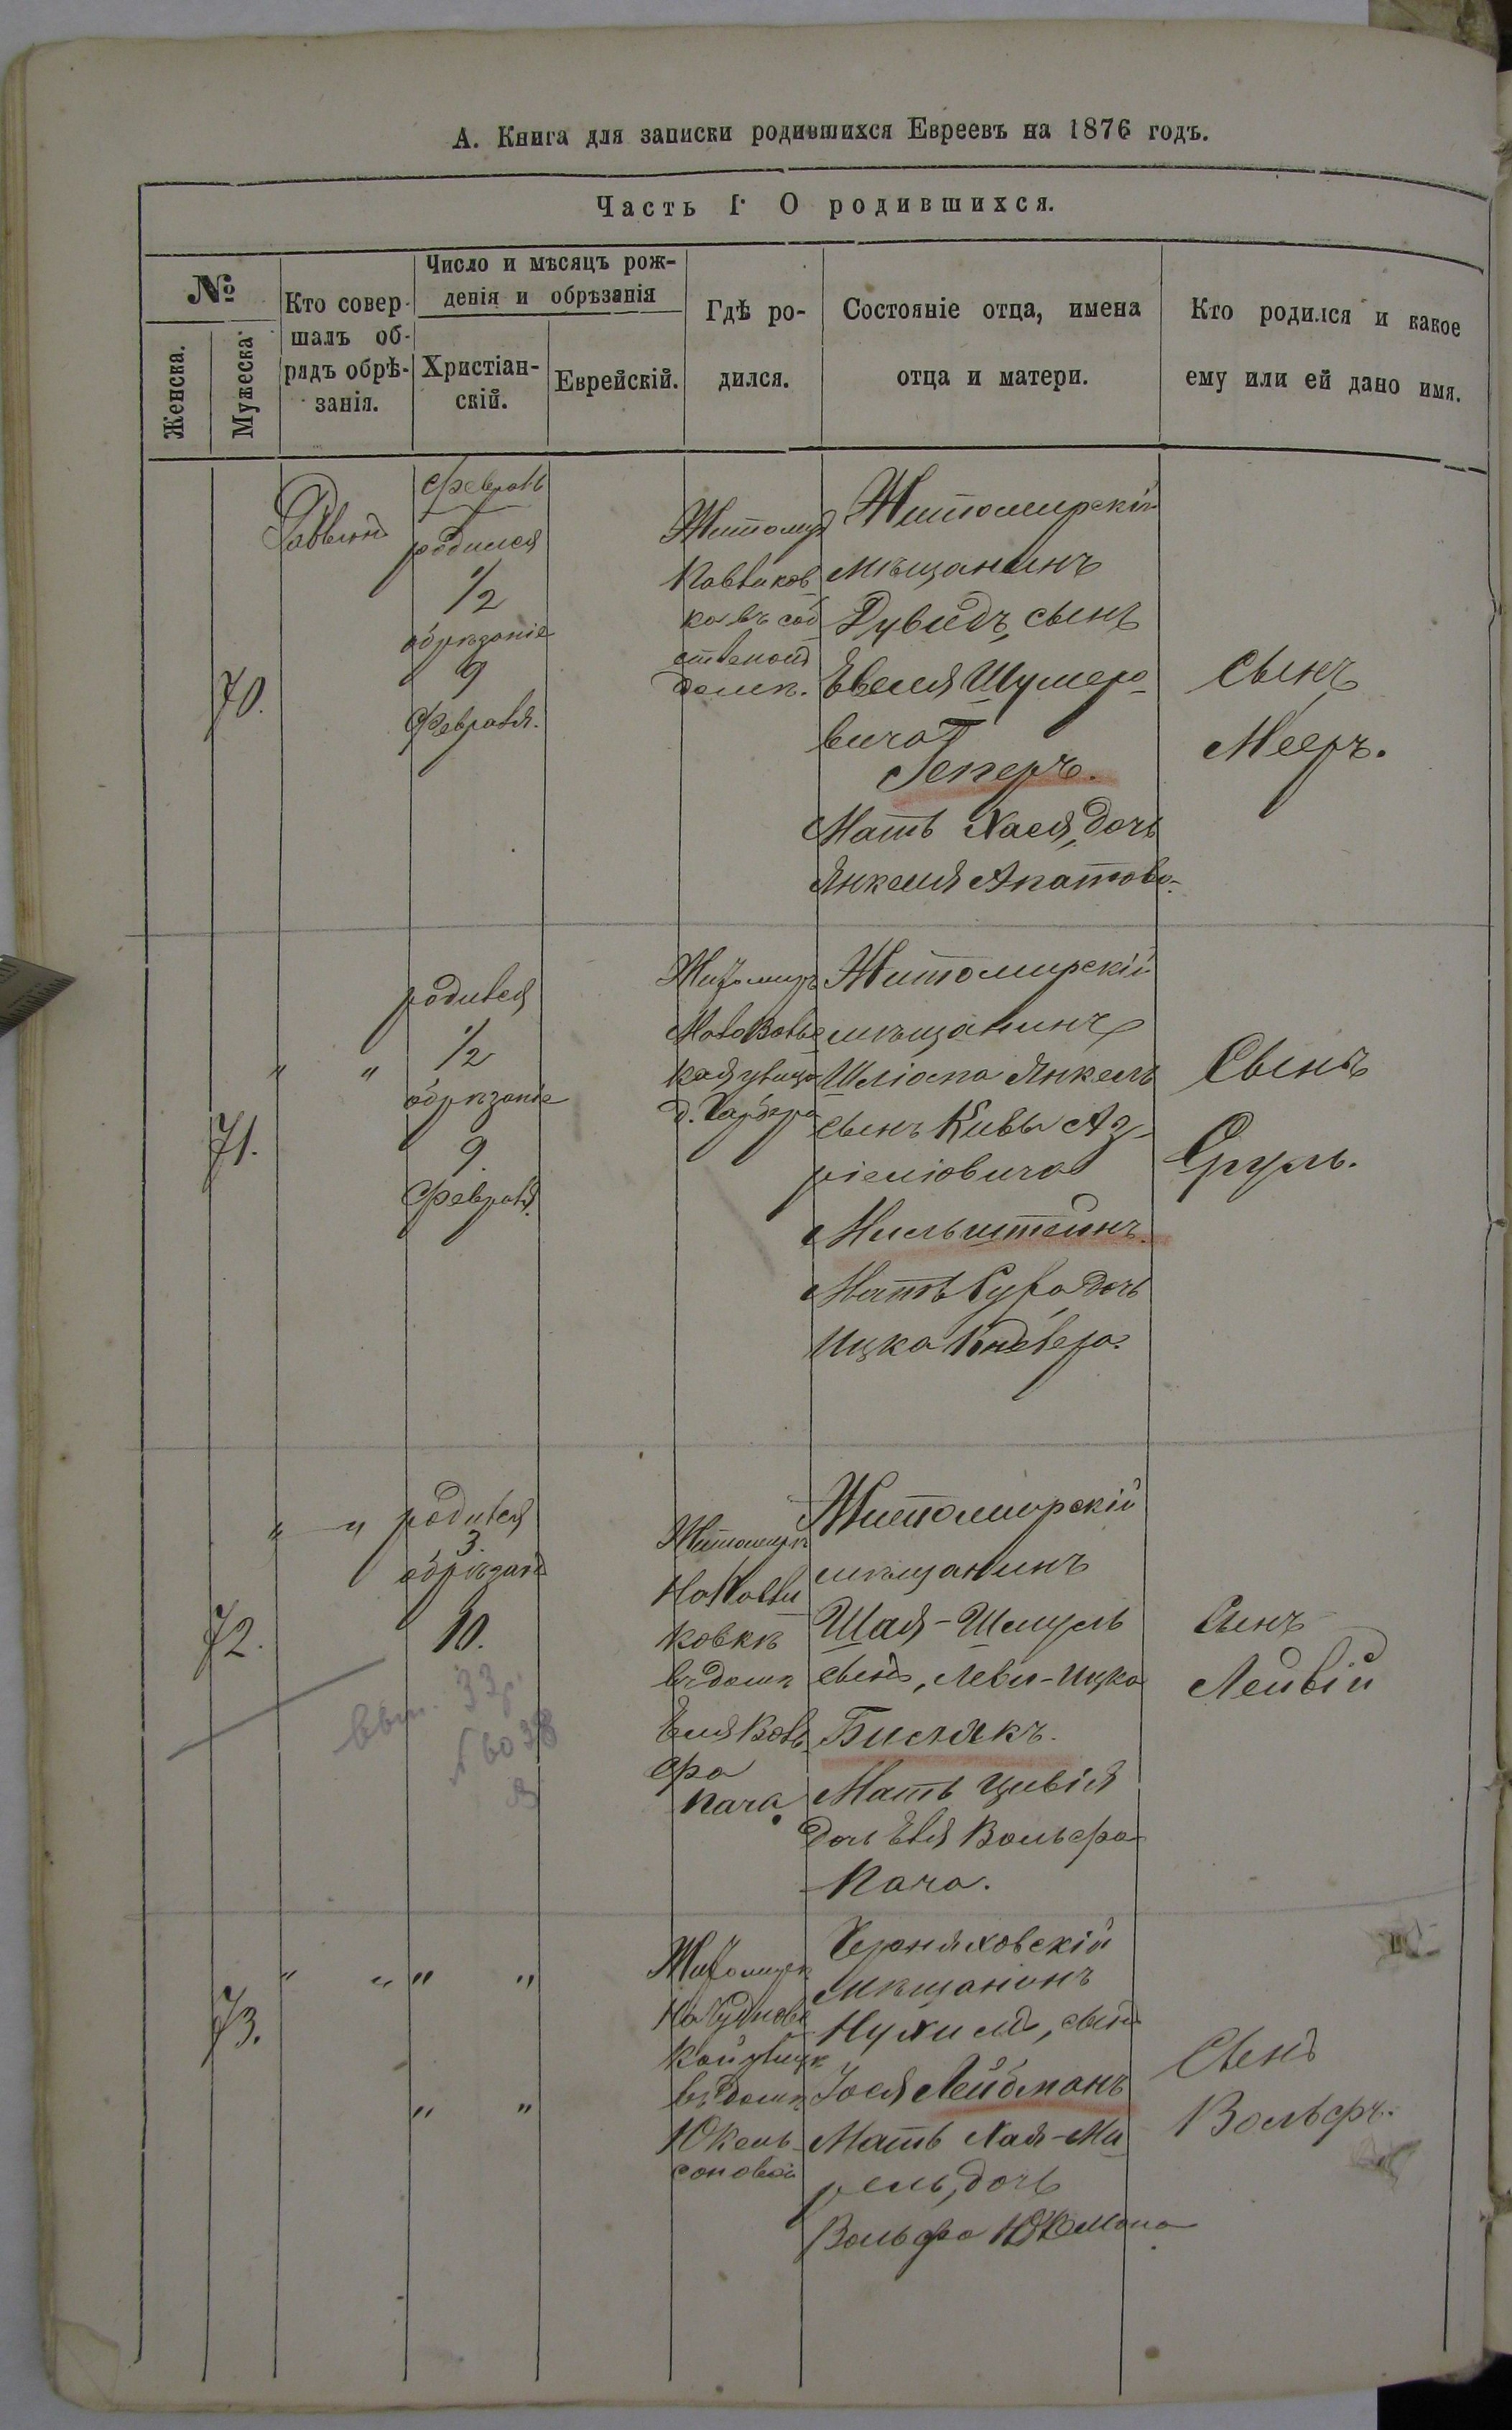 А. Книга для записки родившихся Евреевъ на 1876 годъ.
Часть I. О родившихся.
№
Женска.
Мужеска
Кто совер-
шалъ об-
рядъ обрѣ-
занія.
Число и мѣсяцъ рож-
денія и обрѣзанія
Христіан-
скій.
Еврейскій.
Гдѣ ро-
дился.
Состояніе отца, имена
отца и матери.
Кто родился и какое
ему или ей дано имя.
70.
Раввинъ
Февраль
родился
1/2
обрѣзаніе
9
Февраля.
Житомир
Павликов
ка въ соб
ственом
домѣ.
Житомирскій
мѣщанинъ
Дувидъ, сынъ
Евеля Шумеро
вича
Геперъ.
Мать Хася, дочь
Янкеля Апатова.
Сынъ
Мееръ.
71.
" "
родился
1/2
обрѣзаніе
9.
Февраля.
Житомиръ
кая улица
Житомирскій
мѣщанинъ
Шліома Янкель
сынъ Кивы Аз-
ріеліовича
Мильштейнъ.
Мать Сура дочь
Ицка
Сынъ
Сруль.
72.
" "
родился
3.
обрѣзаніе
10.
Житомиръ
На Павли
ковкѣ
въ домѣ
Еля Воль
фа
Кача.
Житомирскій
мѣщанинъ
Шая-Шмуль
сынъ, Леви-Ицка
Бислякъ.
Мать Цивія
дочь Еля Вольфа
Кача.
Сынъ
Лейвій
73.
" " " "
" "
Житомиръ
На Чуднов
кой улицѣ
въ домѣ
Юкель
соновой
Черняховскій
Мѣщанинъ
Нухимъ, сынъ
Іося Лейбманъ
Мать Хая-Ми
рель, дочь
Вольфа
Сынъ
Вольфъ.